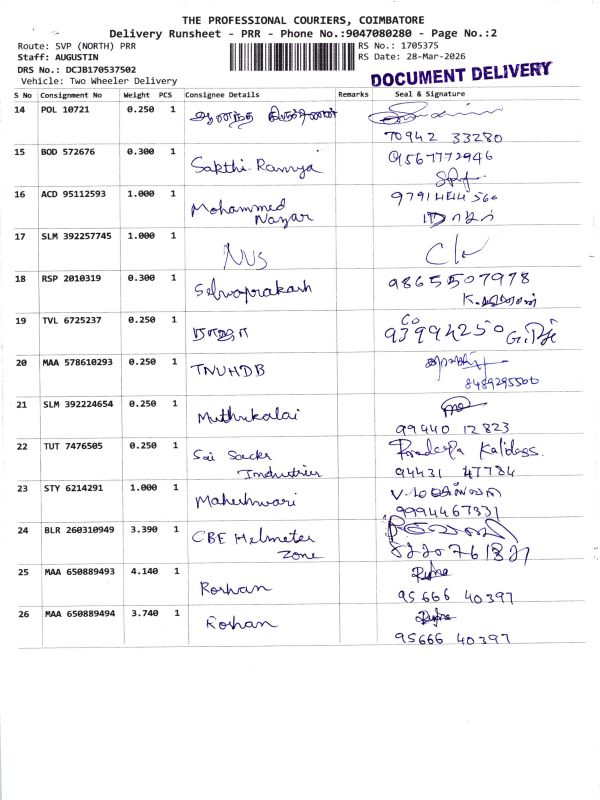 THE PROFESSIONAL COURIERS, COIMBATORE
Delivery Runsheet - PRR - Phone No.:9047080280 - Page No.:2
Route: SVP (NORTH) PRR
Staff: AUGUSTIN
DRS No.: DCJB170537502
Vehicle: Two Wheeler Delivery
RS No.: 1705375
RS Date: 28-Mar-2026
DOCUMENT DELIVERY
S No Consignment No Weight PCS Consignee Details Remarks Seal & Signature
14 POL 10721 0.250 1 ஆனந்த
70942 33280
15 BOD 572676 0.300 1 Sakthi Ramya 9567772946
16 ACD 95112593 1.000 1 Mohammed Nazar 9791444560
17 SLM 392257745 1.000 1 NVS
18 RSP 2010319 0.300 1 Selvaprakash 9865507978
19 TVL 6725237 0.250 1
20 MAA 578610293 0.250 1 TNUHDB
8489295500
21 SLM 392224654 0.250 1 Muthukalai
99440 12823
22 TUT 7476505 0.250 1 Sai Sacks Industries Pradeepa Kalidass.
94431 47784
23 STY 6214291 1.000 1 Maheshwari
9994467331
24 BLR 260310949 3.390 1 CBE Helmeter Zone
25 MAA 650889493 4.140 1 Roshan
95666 40397
26 MAA 650889494 3.740 1 Roshan
95666 40397